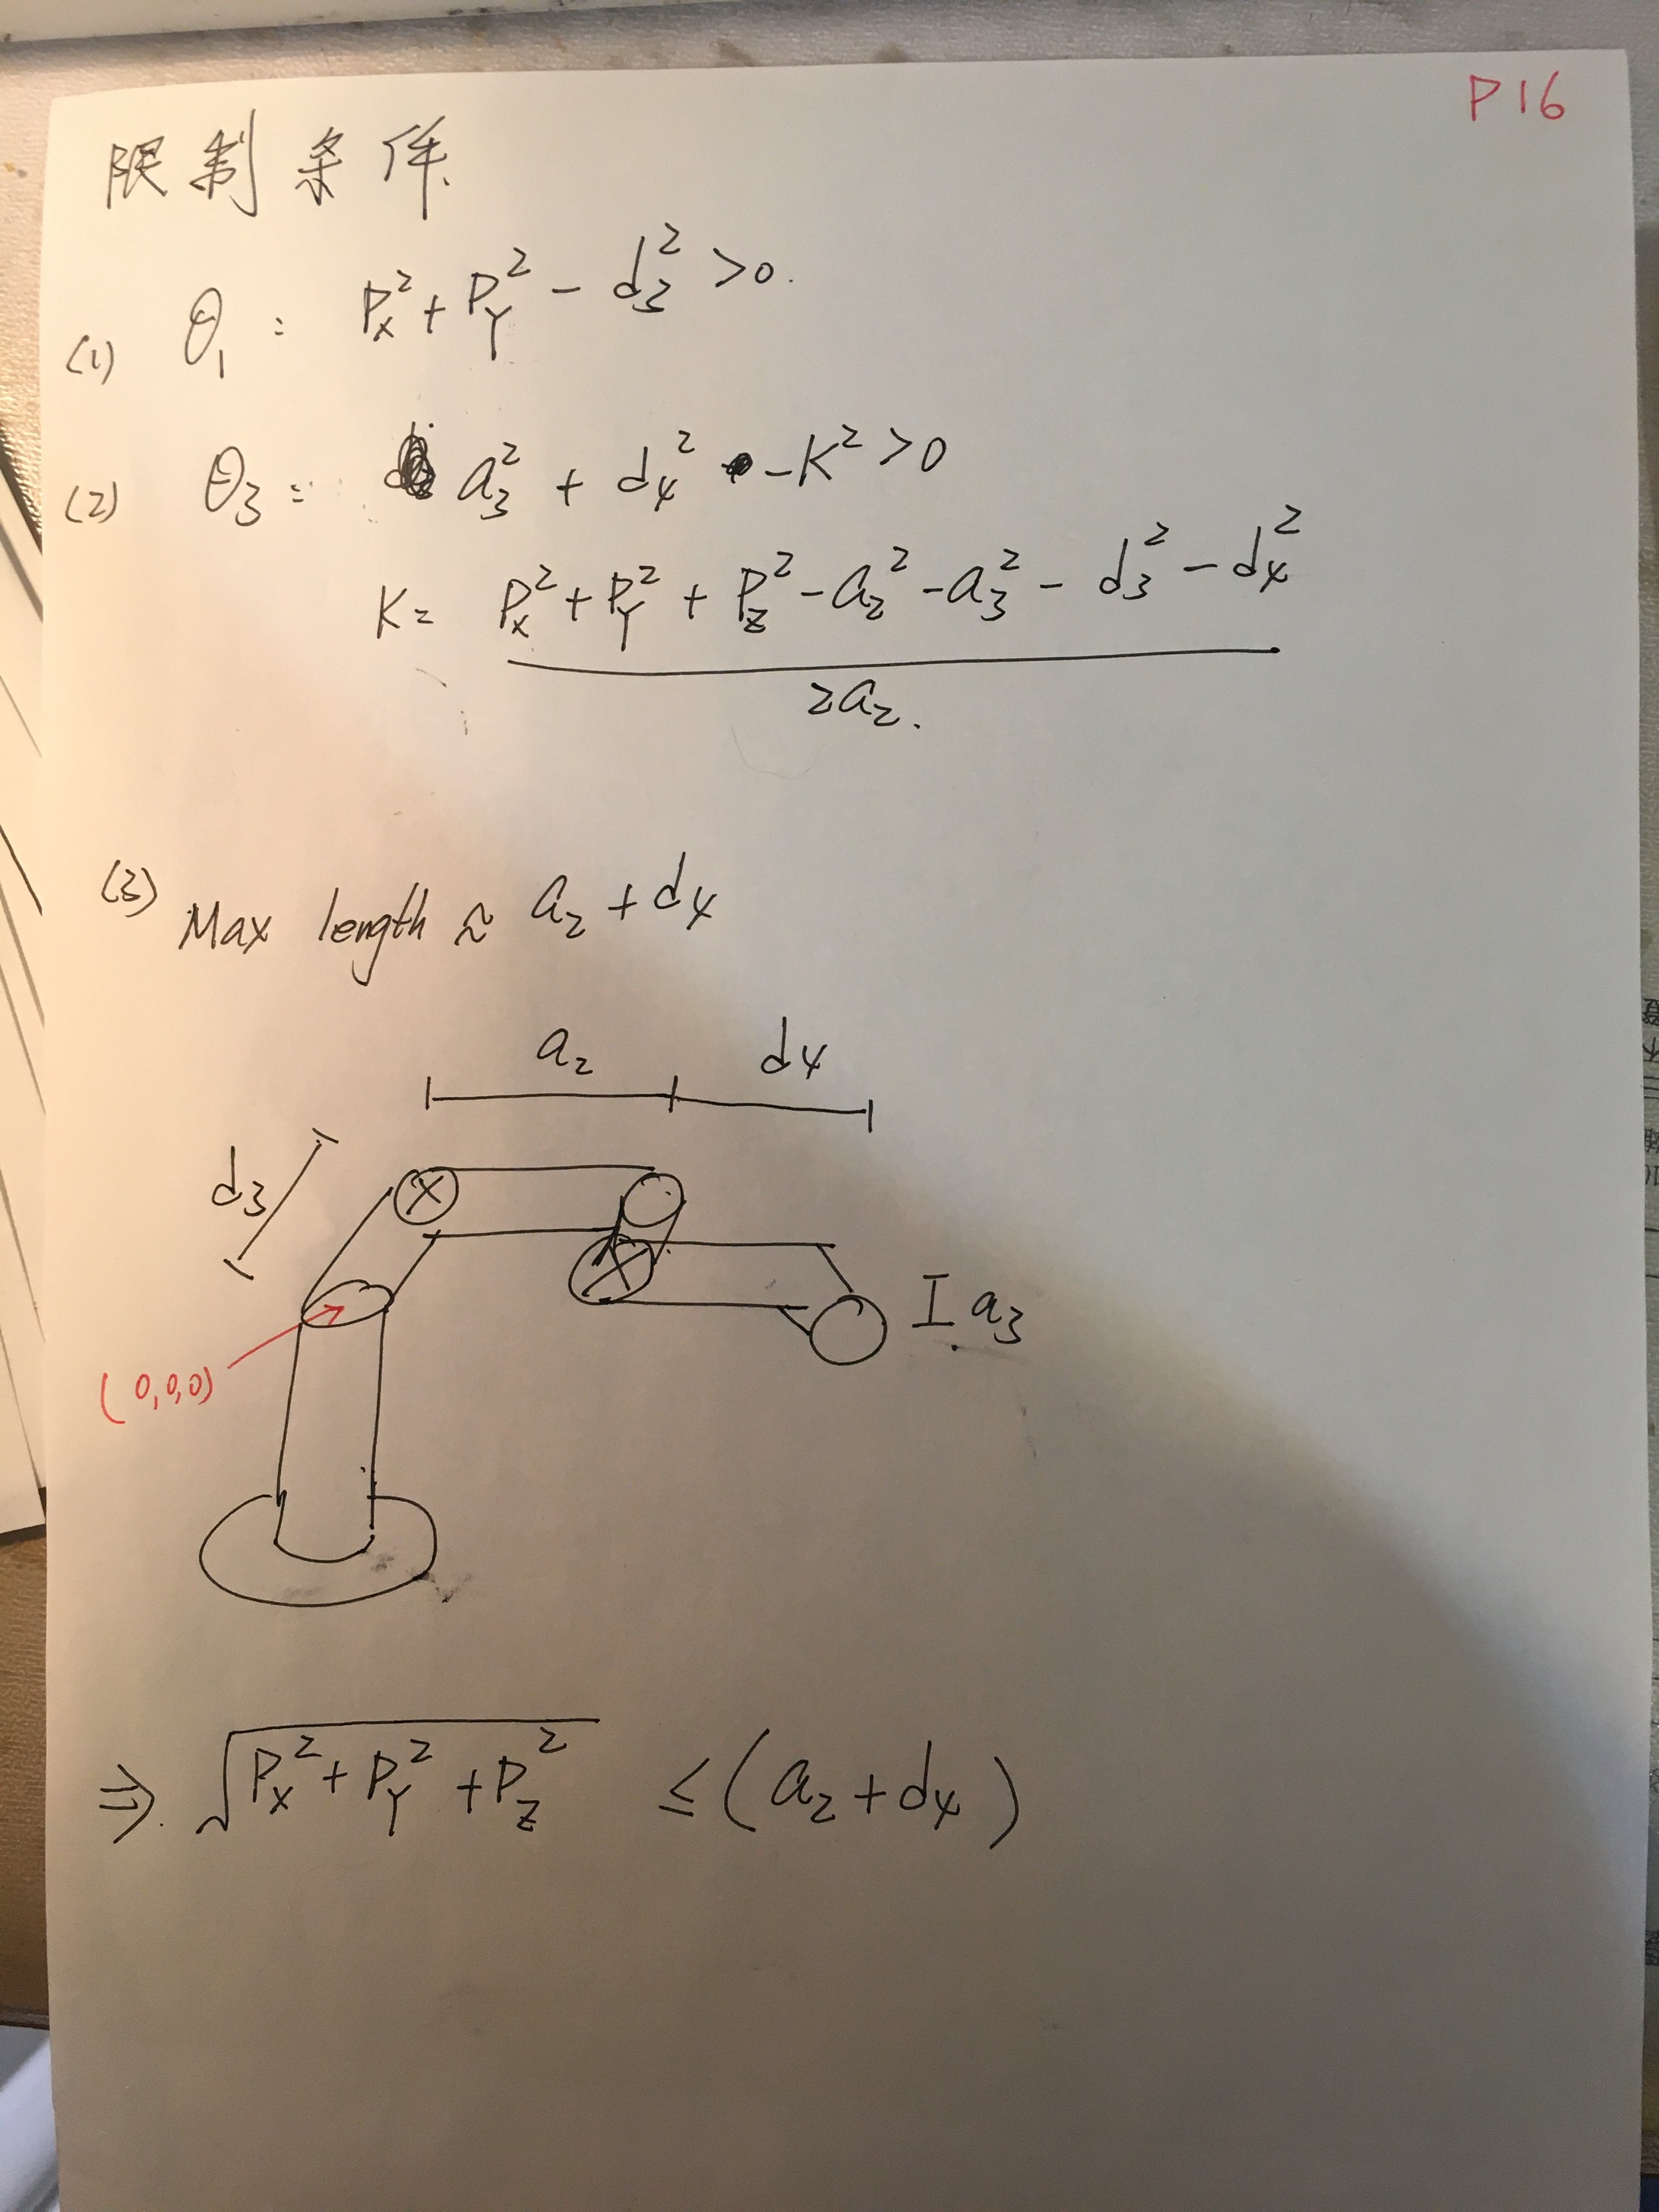 P16
限制条件.
(1) θ₁ : Pₓ² + P_Y² - d₃² >0.
(2) θ₃ : a₃² + d₄² - K² >0
K= Pₓ² + P_Y² + P_Z² - a₂² - a₃² - d₃² - d₄²
2a₂.
(3) Max length ≈ a₂ + d₄
a₂ d₄
d₃
a₃
(0,0,0)
⇒. √Pₓ² + P_Y² + P_Z² ≤ (a₂ + d₄)